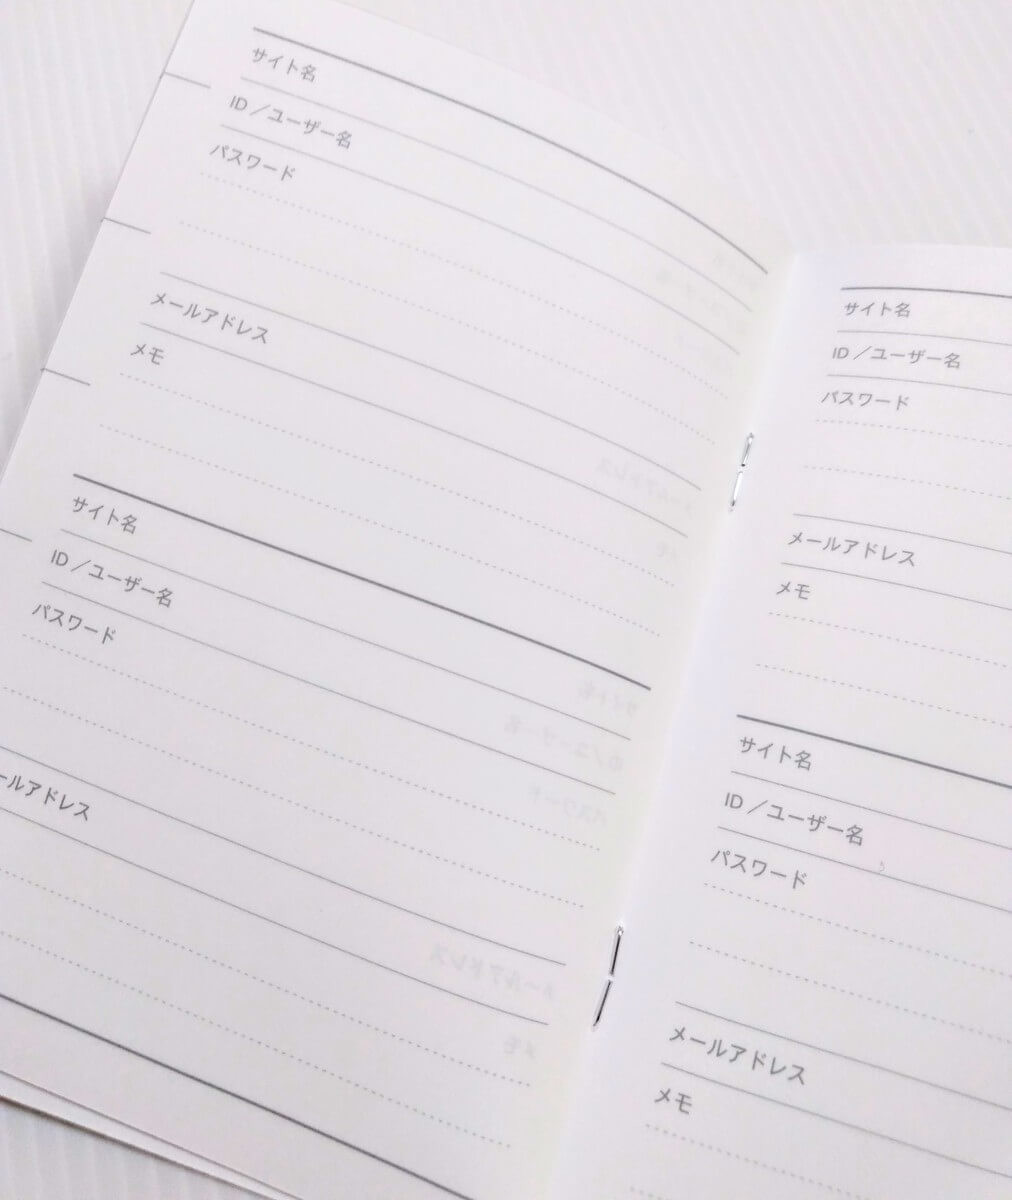 サイト名
ID／ユーザー名
パスワード
メールアドレス
メモ
サイト名
ID／ユーザー名
パスワード
ールアドレス
サイト名
ID／ユーザー名
パスワード
メールアドレス
メモ
サイト名
ID／ユーザー名
パスワード
メールアドレス
メモ